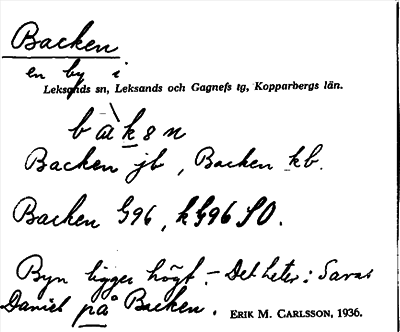 Backen
en by i
Leksands sn, Leksands och Gagnefs tg, Kopparbergs län.
Backen jb, Backen kb.
Backen G96, kG96 SO.
Byn ligger högt. – Det heter: Saras
Daniel på Backen. ERIK M. CARLSSON, 1936.